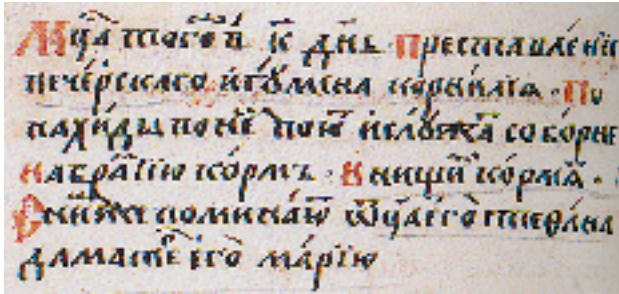 Мц҃а того́ в҃ к҃ дн҃ь преставлени
пече́рскаго игꙋ́мена корни́лїа · По
нахи́ды по не́ пою́ и слꙋжа́ собо́рне
на бра́тїю ко́рмъ · И нищи́ ко́рмѧ ·
помина́ю ѿц҃а его́ стефана
да мате его́ ма́рїю